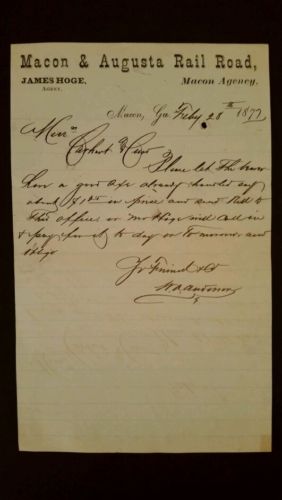 Macon & Augusta Rail Road,
JAMES HOGE,
AGENT.
Macon Agency.
Macon, Ga. Feby 28th 1877
Messrs
Carhart & Curd
Please let the bearer
have a good axe already handled say
about $1.00 in price and send Bill to
this office or Mr Hoge will call in
& pay for it to day or tomorrow and
oblige
Yr Friend &c
Anderson